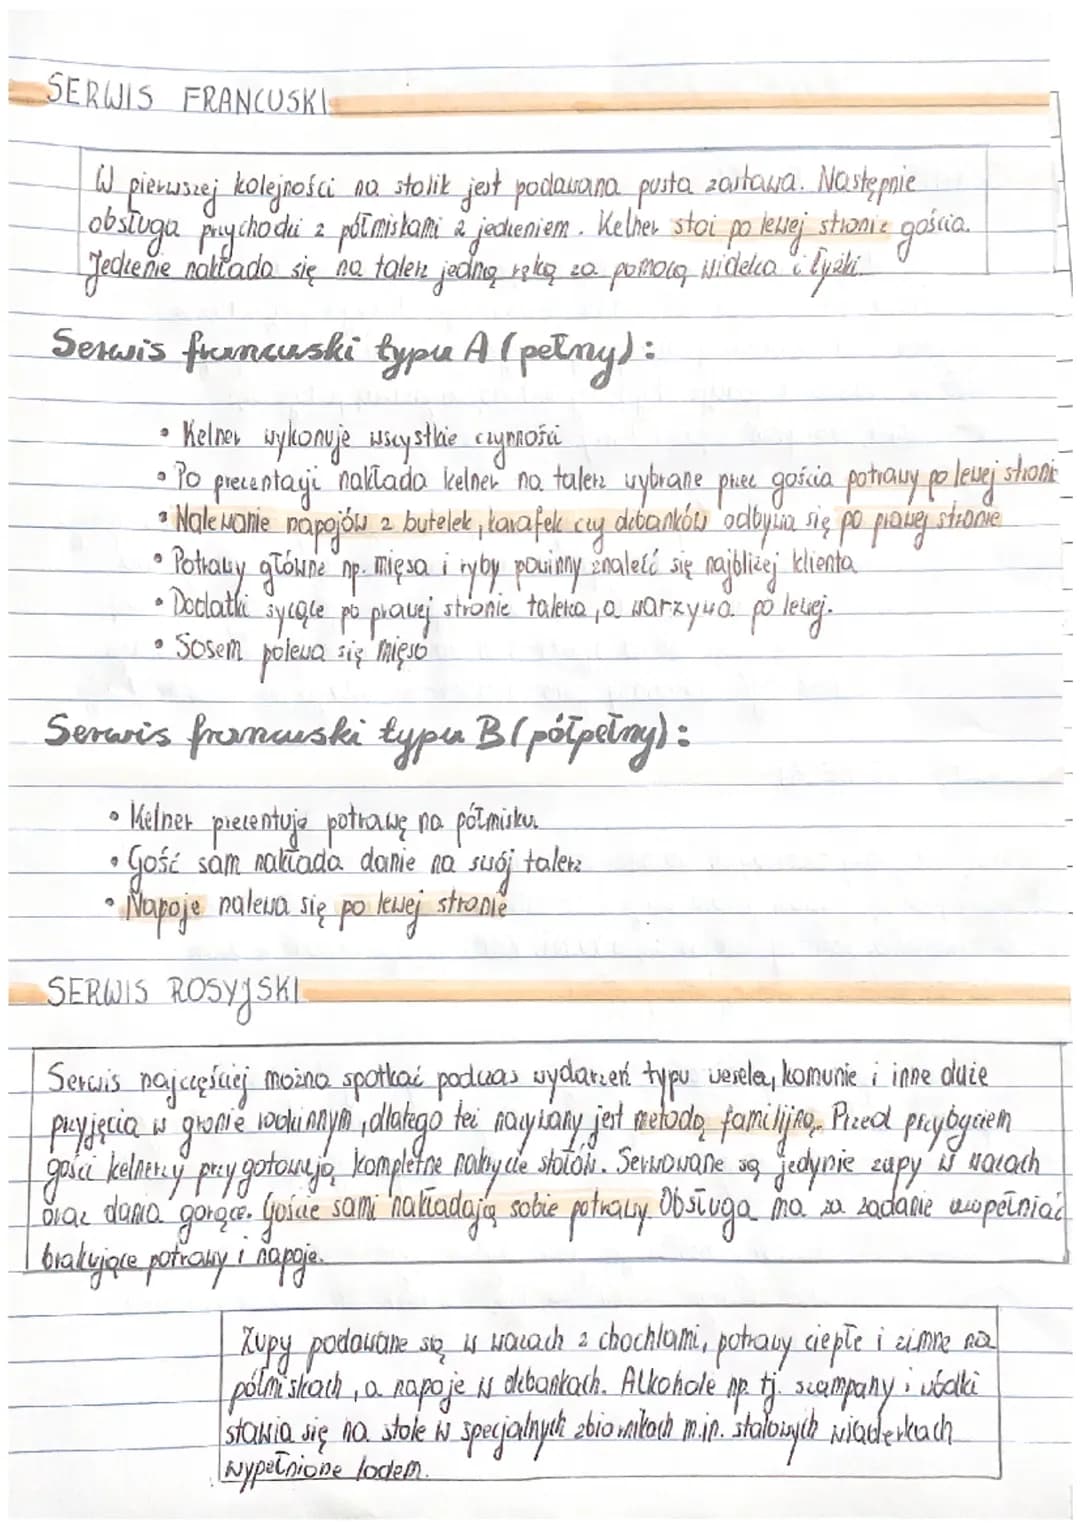 SERWIS FRANCUSKI
W pierwszej kolejności na stolik jest podawana pusta zastawa. Następnie
obsługa przychodzi z półmiskami z jedzeniem. Kelner stoi po lewej stronie gościa.
Jedzenie nakłada się na talerz jedną ręką za pomocą widelca i łyżki.
Serwis francuski typu A (pełny):
• Kelner wykonuje wszystkie czynności
• Po prezentacji nakłada kelner na talerz wybrane przez gościa potrawy po lewej stronie
• Nalewanie napojów z butelek, karafek czy dzbanków odbywa się po prawej stronie
• Potrawy główne np. mięsa i ryby powinny znaleźć się najbliżej klienta
• Dodatki sycące po prawej stronie talerza, a warzywa po lewej.
• Sosem polewa się mięso
Serwis francuski typu B (półpełny):
• Kelner prezentuje potrawę na półmisku.
• Gość sam nakłada danie na swój talerz
• Napoje nalewa się po lewej stronie
SERWIS ROSYJSKI
Serwis najczęściej można spotkać podczas wydarzeń typu wesela, komunie i inne duże
przyjęcia w gronie rodzinnym, dlatego też nazywany jest metodą familijną. Przed przybyciem
gości kelnerzy przygotowują kompletne nakrycie stołów. Serwowane są jedynie zupy w wazach
oraz dania gorące. Goście sami nakładają sobie potrawy. Obsługa ma za zadanie uzupełniać
brakujące potrawy i napoje.
Zupy podawane są w wazach z chochlami, potrawy ciepłe i zimne na
półmiskach, a napoje w dzbankach. Alkohole np. tj. szampany i wódki
stawia się na stole w specjalnych zbiornikach m.in. stalowych wiaderkach
wypełnione lodem.